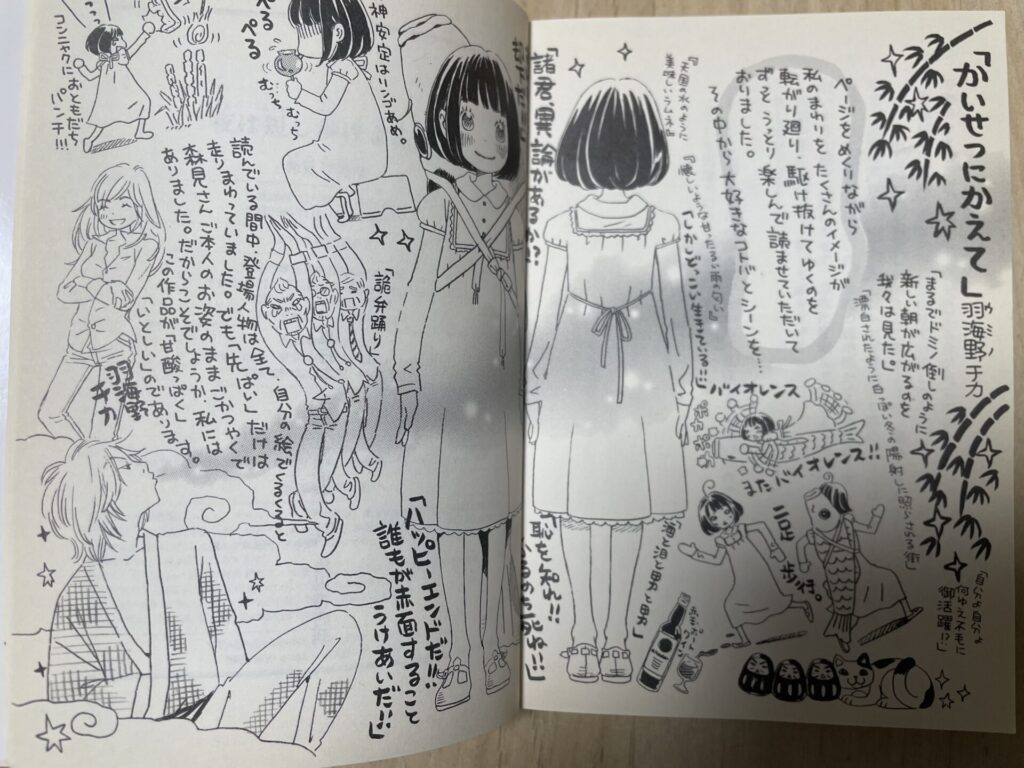 「かいせつにかえて」羽海野チカ
ページをめくりながら
私のまわりを たくさんのイメージが
転がり廻り、駆け抜けてゆくのを
ずっと うっとり 楽しんで 読ませていただいて
おりました。
その中から 大好きなコトバとシーンを…
「まるでドミノ倒しのように
新しい朝が広がるのを
我々は見た」
「漂白されたように白っぽい冬の陽射しに照らされる街」
「自分よ自分よ
何ゆえ不毛に
御活躍!?」
バイオレンス
またバイオレンス!!
二足歩行。
「酒と泪と男と男」
「諸君、異論があるか?
恥を知れ!!
死ね!!」
「ハッピーエンドだ!!
誰もが赤面すること
うけあいだ!!」
神安定はリンゴあめ。
ぺろ
むっちむっち
コンニャクに
おともだち
パンチ!!!
「詭弁踊り」
読んでいる間中、登場人物は全て、自分の絵でくるくると
走りまわっていました。でも「先ぱい」だけは
森見さんご本人のお姿のままごかつやくで
ありました。だからしてことでしょうか、私には
この作品が「甘酸っぱく」も
「いとしい」のであります。
羽海野
チカ